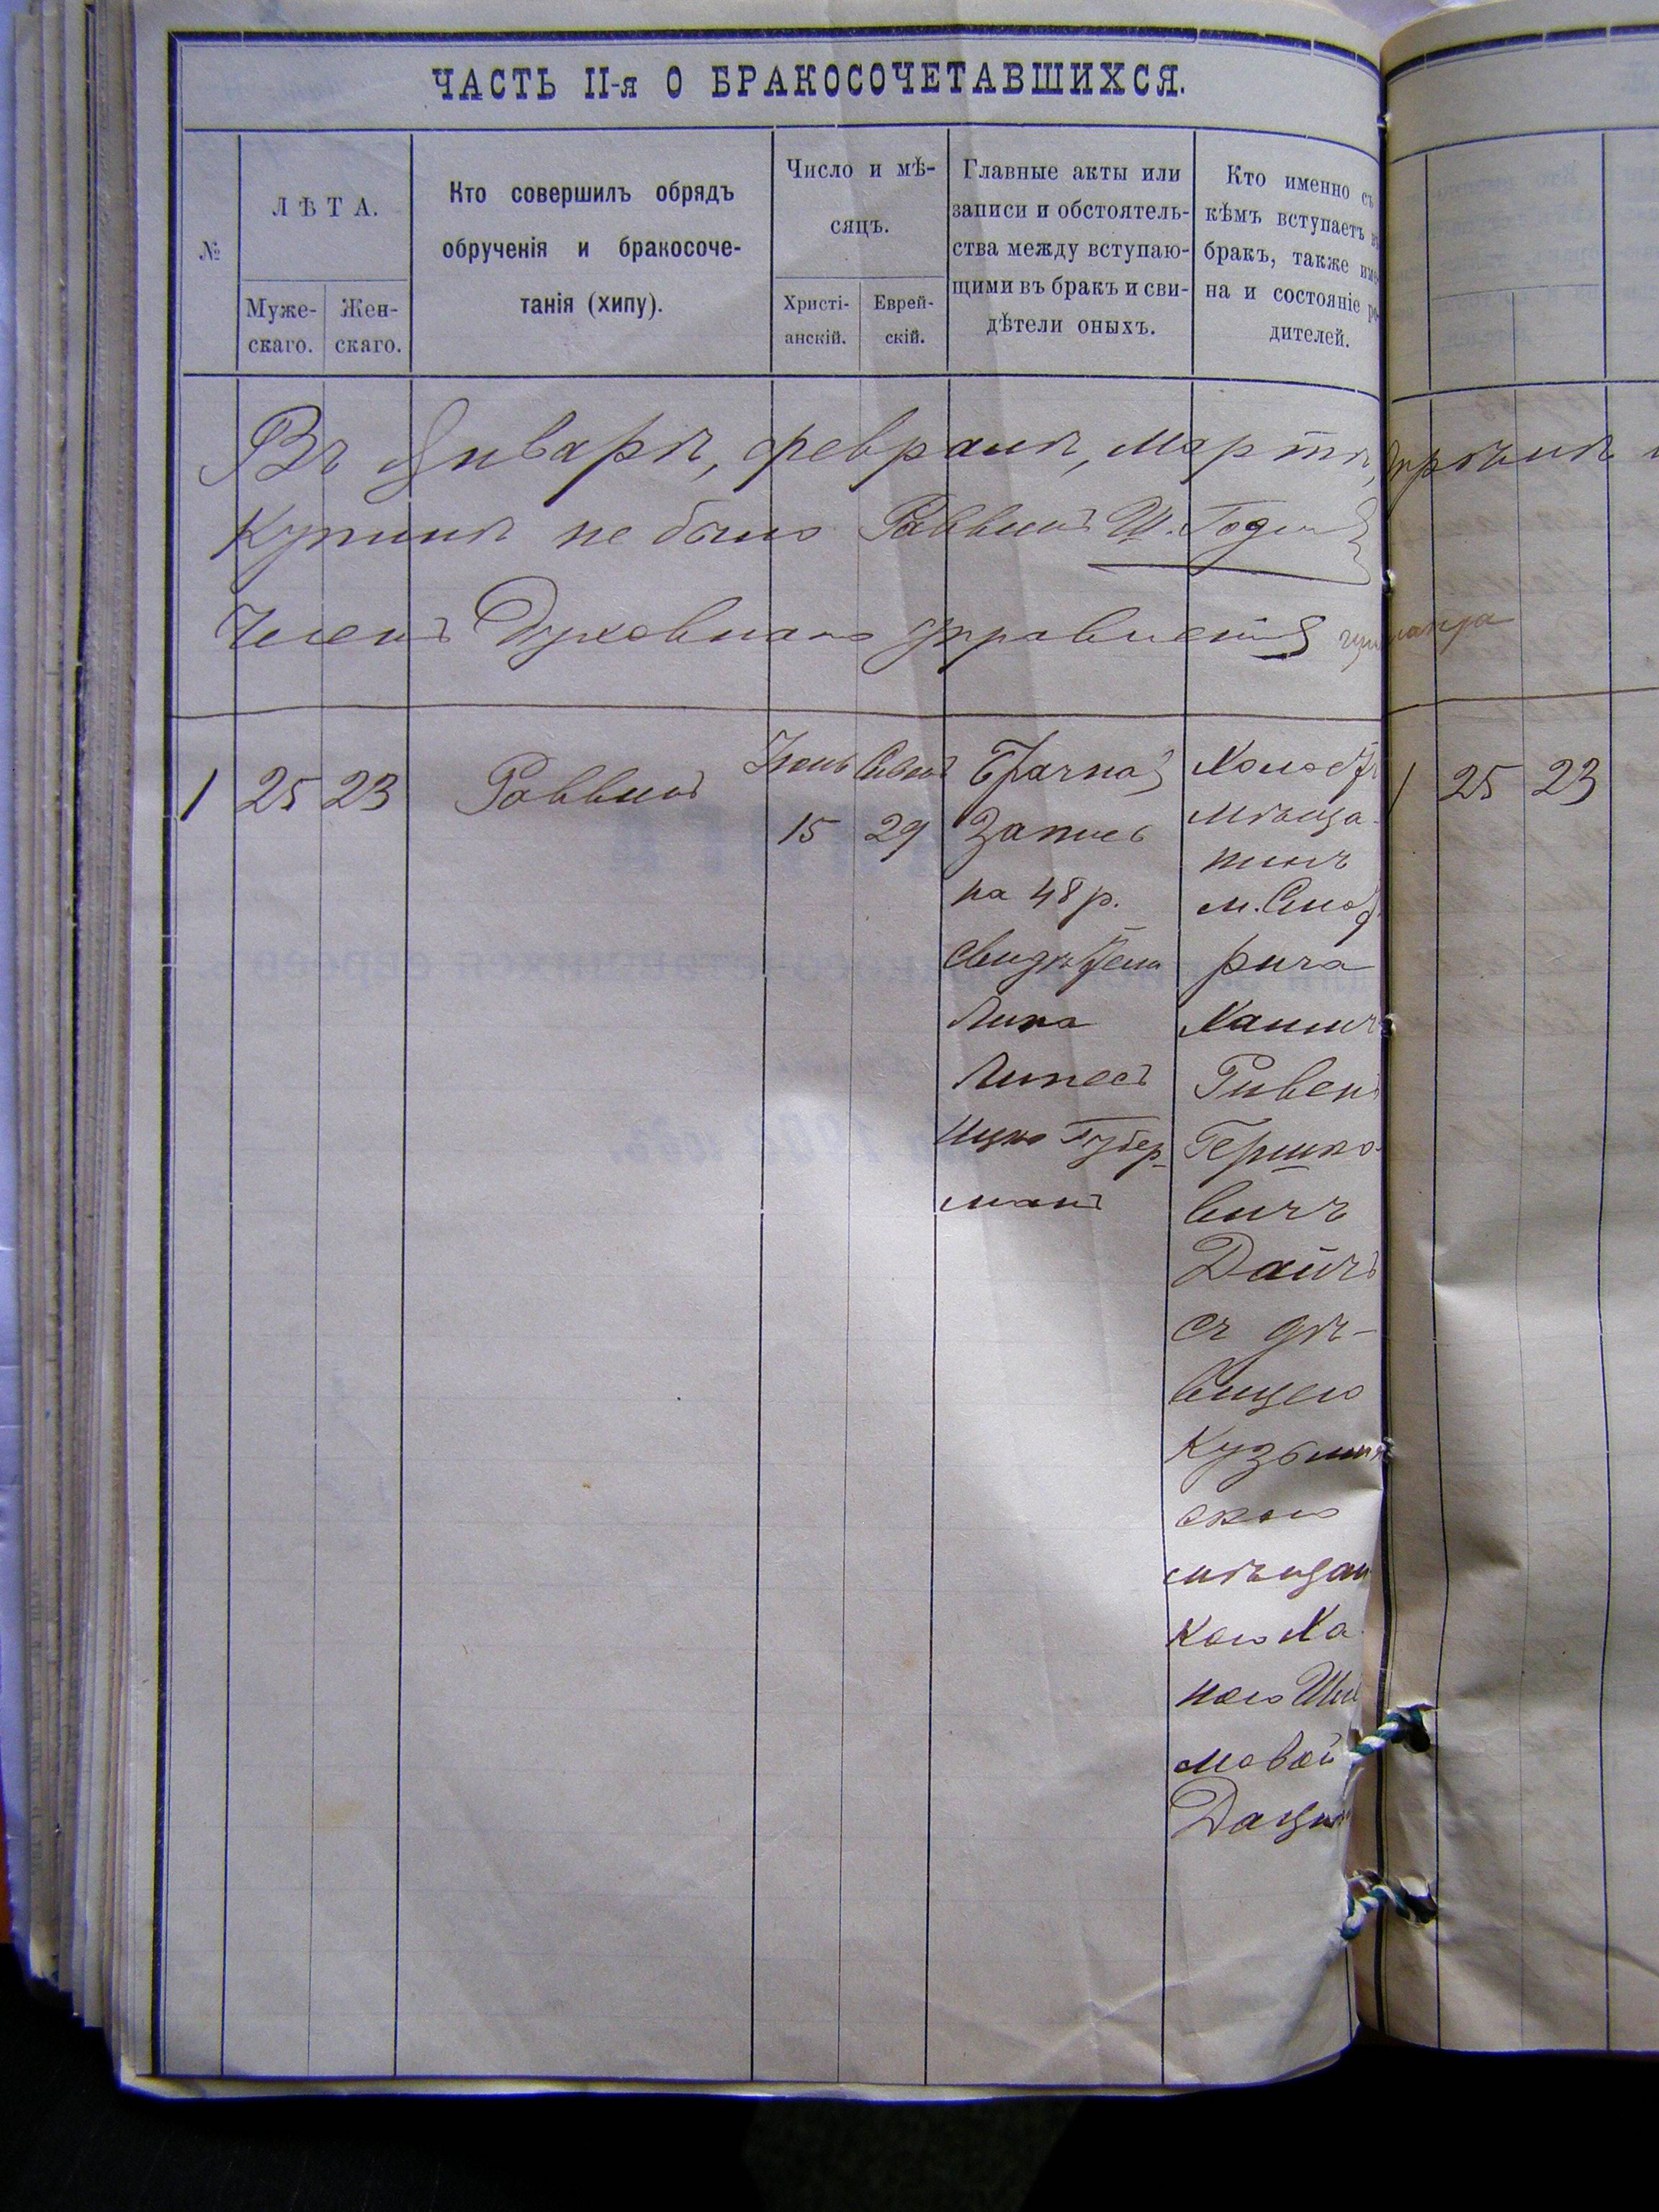 ЧАСТЬ II-я О БРАКОСОЧЕТАВШИХСЯ.
№
ЛѢТА.
Муже-
скаго.
Жен-
скаго.
Кто совершилъ обрядъ
обрученія и бракосоче-
танія (хипу).
Число и мѣ-
сяцъ.
Христі-
анскій.
Еврей-
скій.
Главные акты или
записи и обстоятель-
ства между вступаю-
щими въ бракъ и сви-
дѣтели оныхъ.
Кто именно съ
кѣмъ вступаетъ въ
бракъ, также име-
на и состояніе ро-
дителей.
Въ Январѣ, февралѣ, мартѣ, апрѣлѣ
не было Раввинъ Ш.
Членъ Духовнаго Правленія
1
25
23
Раввинъ
Іюнь
15
Сивонъ
29
Брачная
Запись
на 48 р.
Свидѣтели
Липа
Липесъ
Ицко Губер-
манъ
Холост
мѣща-
нинъ
м. Смот
рича
Хаимъ
Ривенъ
Гершко-
вичъ
Дайчъ
съ дѣ-
вицею
Кузьмин
скою
мѣщан
кою Ха-
ною
мовой
1
25
23